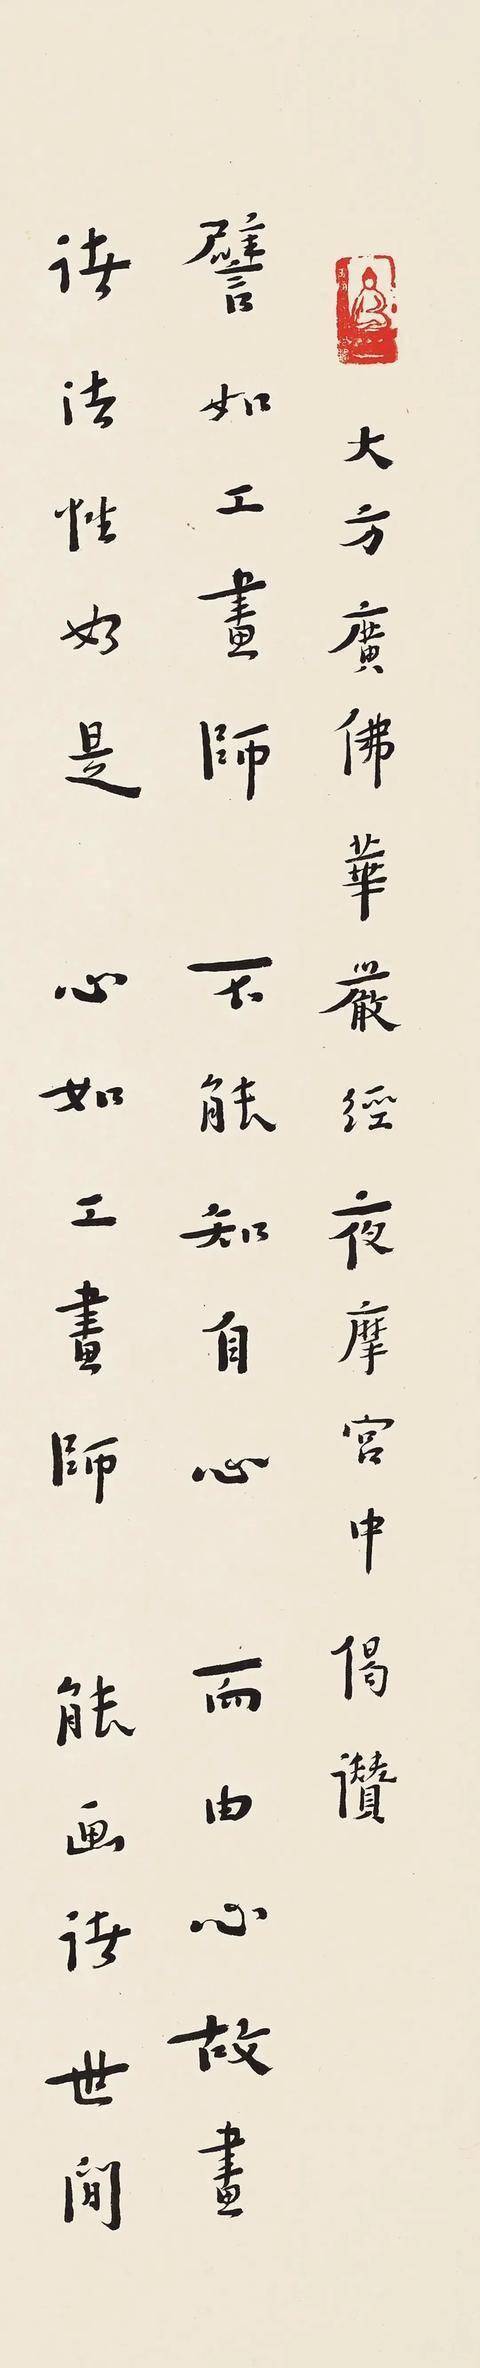 大方廣佛華嚴經夜摩宮中偈讚
譬如工畫師 不能知自心 而由心故畫
諸法性如是 心如工畫師 能画諸世間